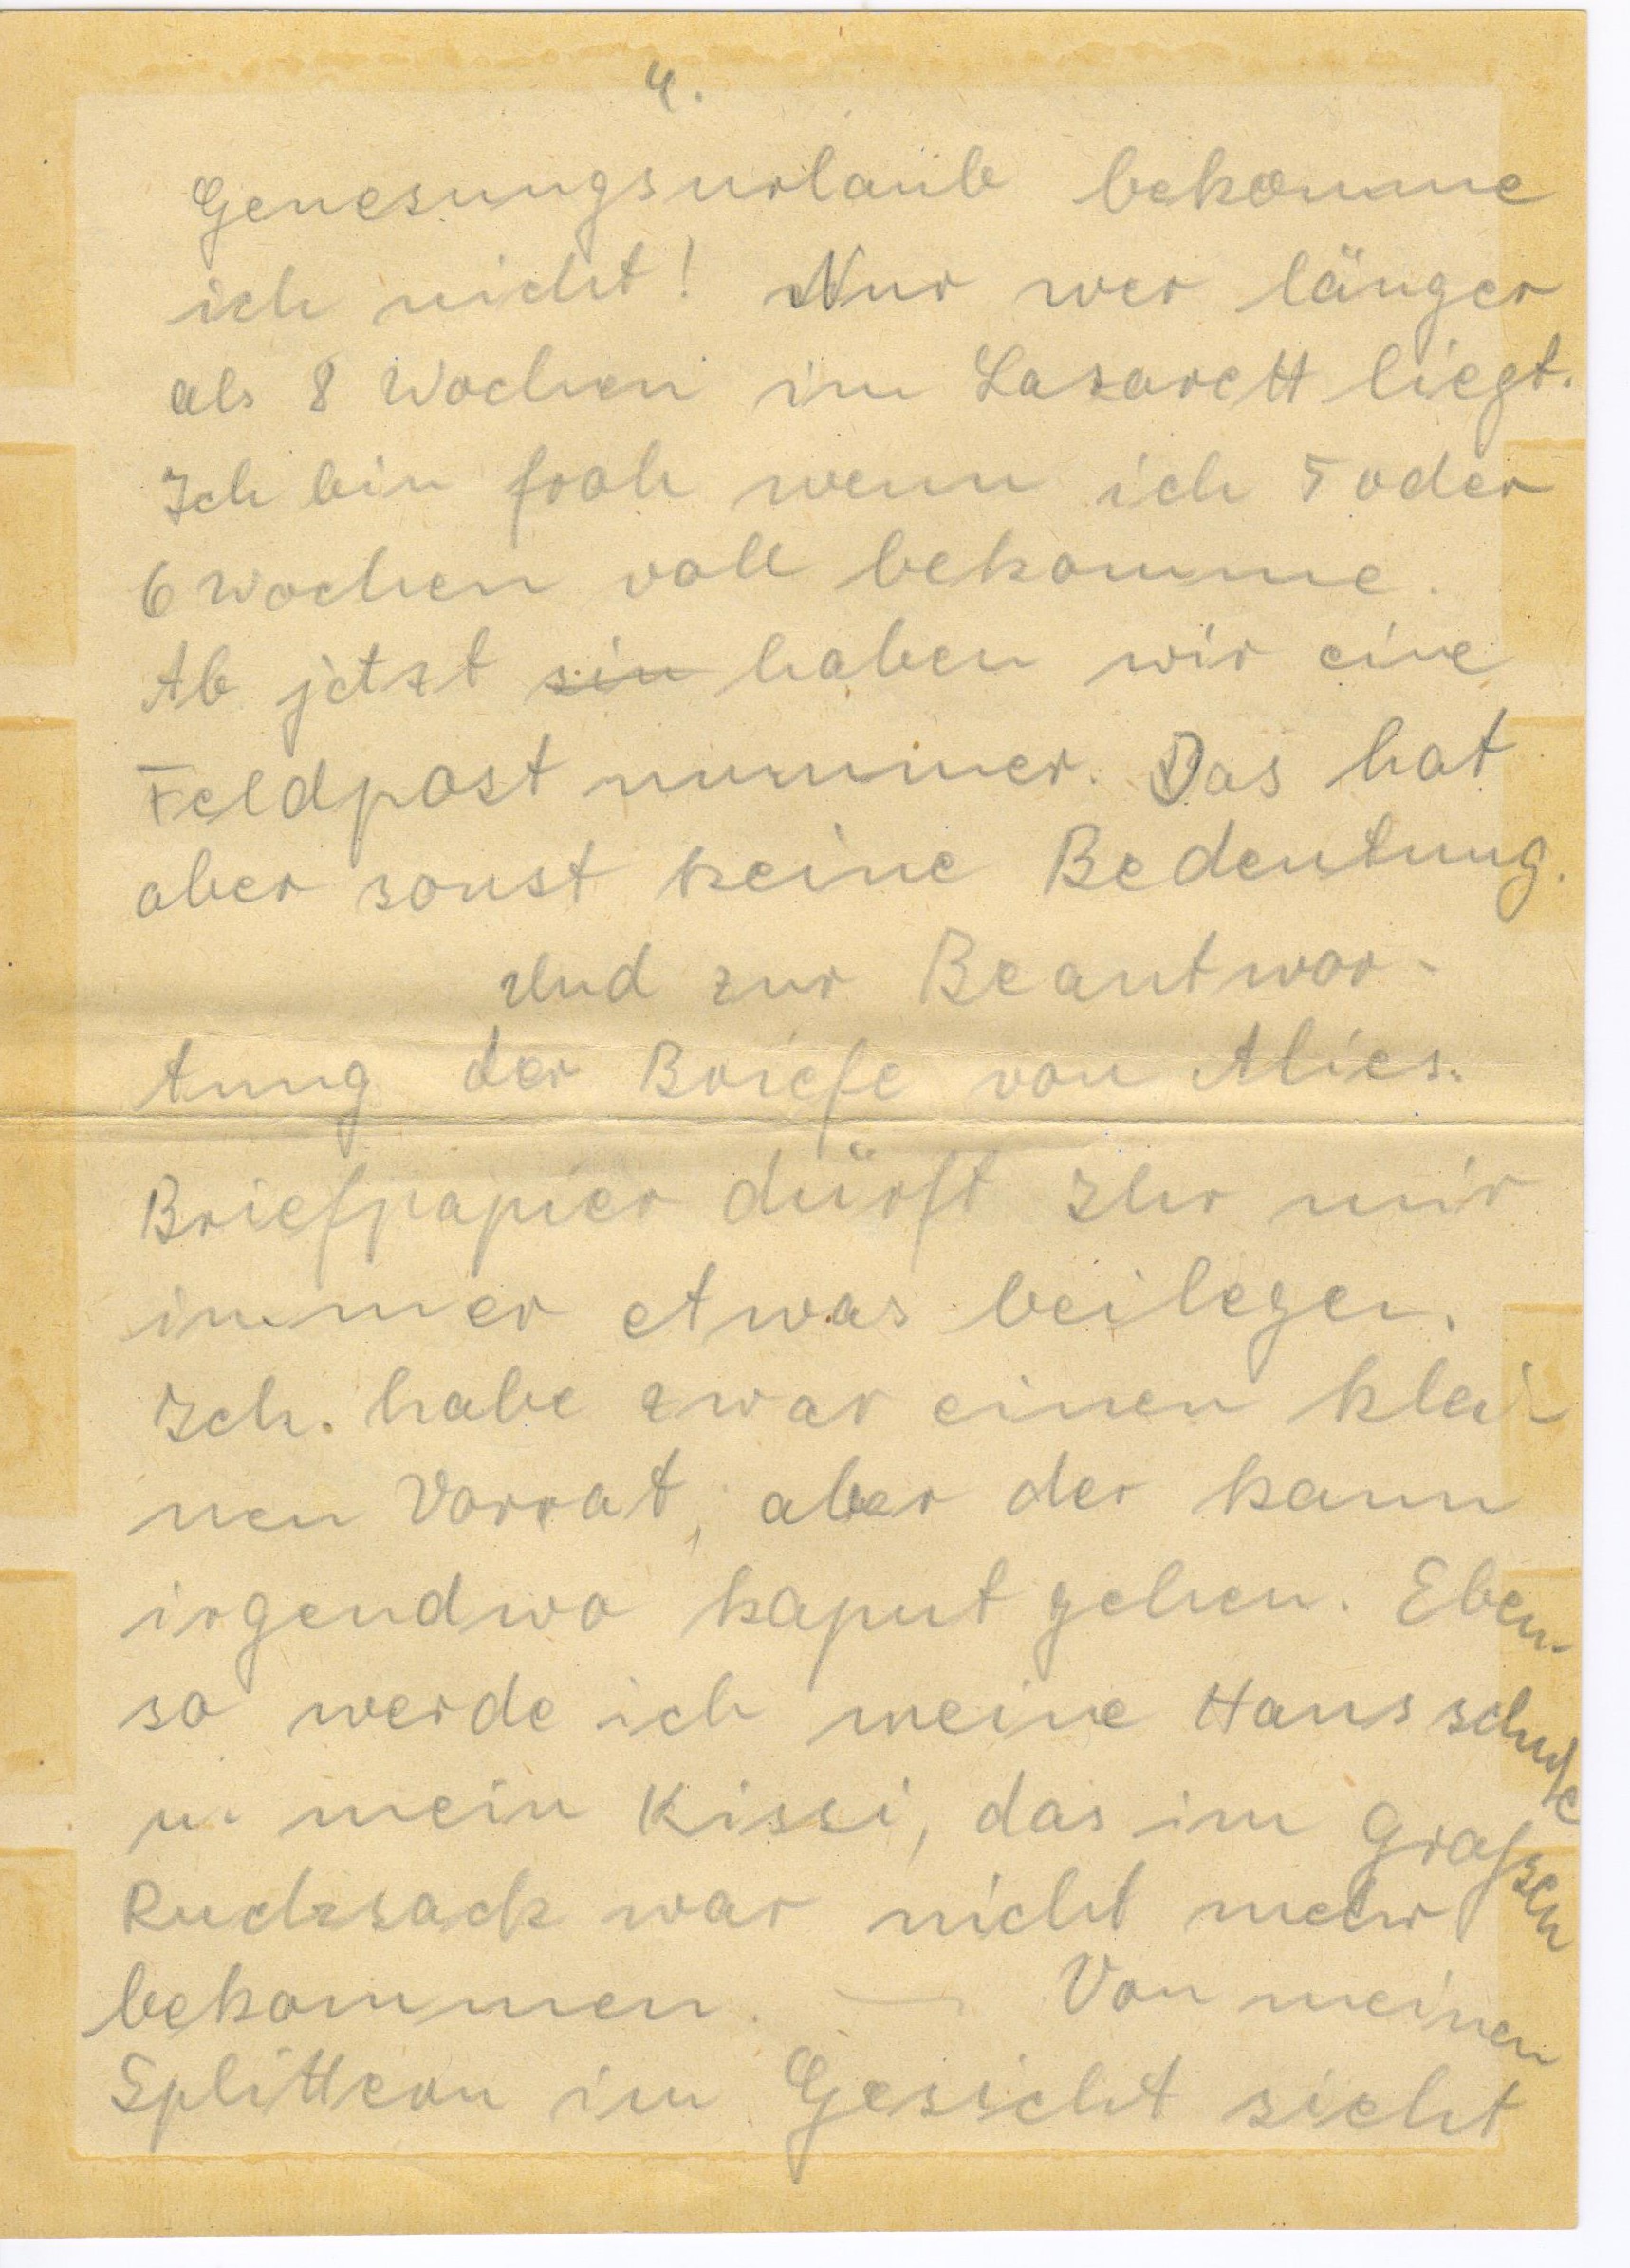 4.
Genesungsurlaub bekomme
ich nicht! Nur wer länger
als 8 Wochen im Lazarett liegt.
Ich bin froh wenn ich 5 oder
6 Wochen voll bekomme.
Ab jetzt sin haben wir eine
Feldpostnummer. Das hat
aber sonst keine Bedeutung.
Und zur Beantwor-
tung der Briefe von Alies.
Briefpapier dürft Ihr mir
immer etwas beilegen.
Ich habe zwar einen klei-
nen Vorrat, aber der kann
irgendwo kaput gehen. Eben-
so werde ich meine Hausschuhe
u. mein Kissi, das im großen
Rucksack war nicht mehr
bekommen. — Von meinen
Splittern im Gesicht sieht